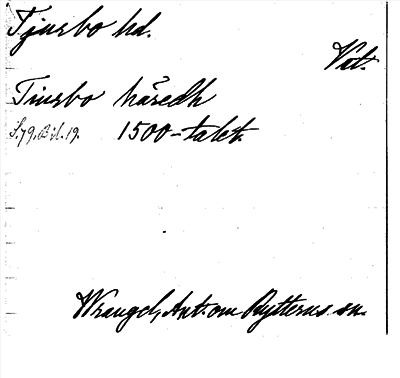 Tjurbo hd.
Vst.
Tiurbo håredh
S. 79, Bil. 19. 1500-talet.
Wrangel, Ant. om Rytterns sn.